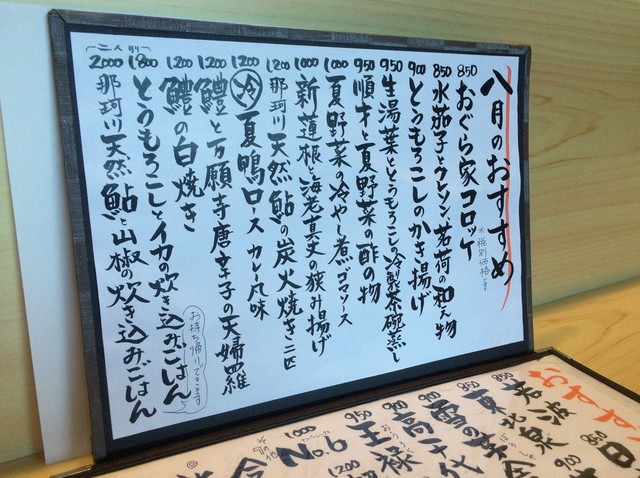 八月のおすすめ
※税別価格です
850 おぐら家コロッケ
850 水茄子とクレソン茗荷の和え物
900 とうもろこしのかき揚げ
950 生湯葉ととうもろこしの冷製茶碗蒸し
950 順才と夏野菜の酢の物
1000 夏野菜の冷やし煮 ゴマソース
1000 新蓮根と海老真丈の挟み揚げ
1200 那珂川天然鮎の炭火焼き 二匹
1200 冷 夏鴨ロース カレー風味
1200 鱧と万願寺唐辛子の天婦羅
1200 鱧の白焼き
1800 とうもろこしとイカの炊き込みごはん
2000 那珂川天然鮎と山椒の炊き込みごはん
お持ち帰りできます
おすす
850 若波
850 東北泉
900
850 雪の茅舎
900 高千代
950 王禄
1000 No.6
1200